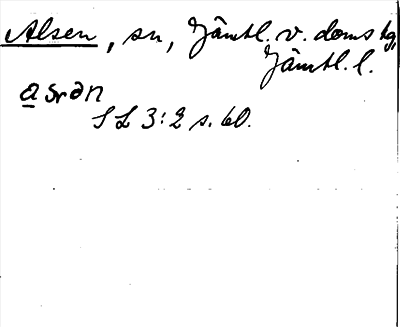 Alsen, sn, Jämtl. v. doms hg,
Jämtl. l.
a sr ə n
S L 3:2 s. 60.